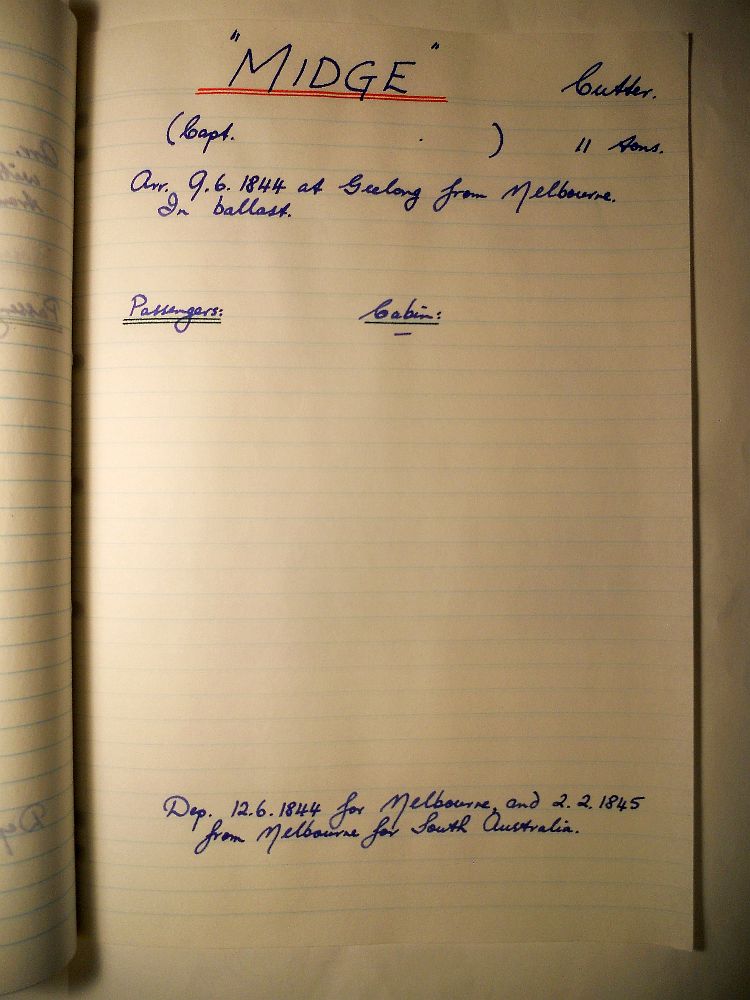 "MIDGE" Cutter.
(Capt. . ) 11 tons.
Arr. 9.6.1844 at Geelong from Melbourne.
In ballast.
Passengers: Cabin:
—
Dep. 12.6.1844 for Melbourne, and 2.2.1845
from Melbourne for South Australia.